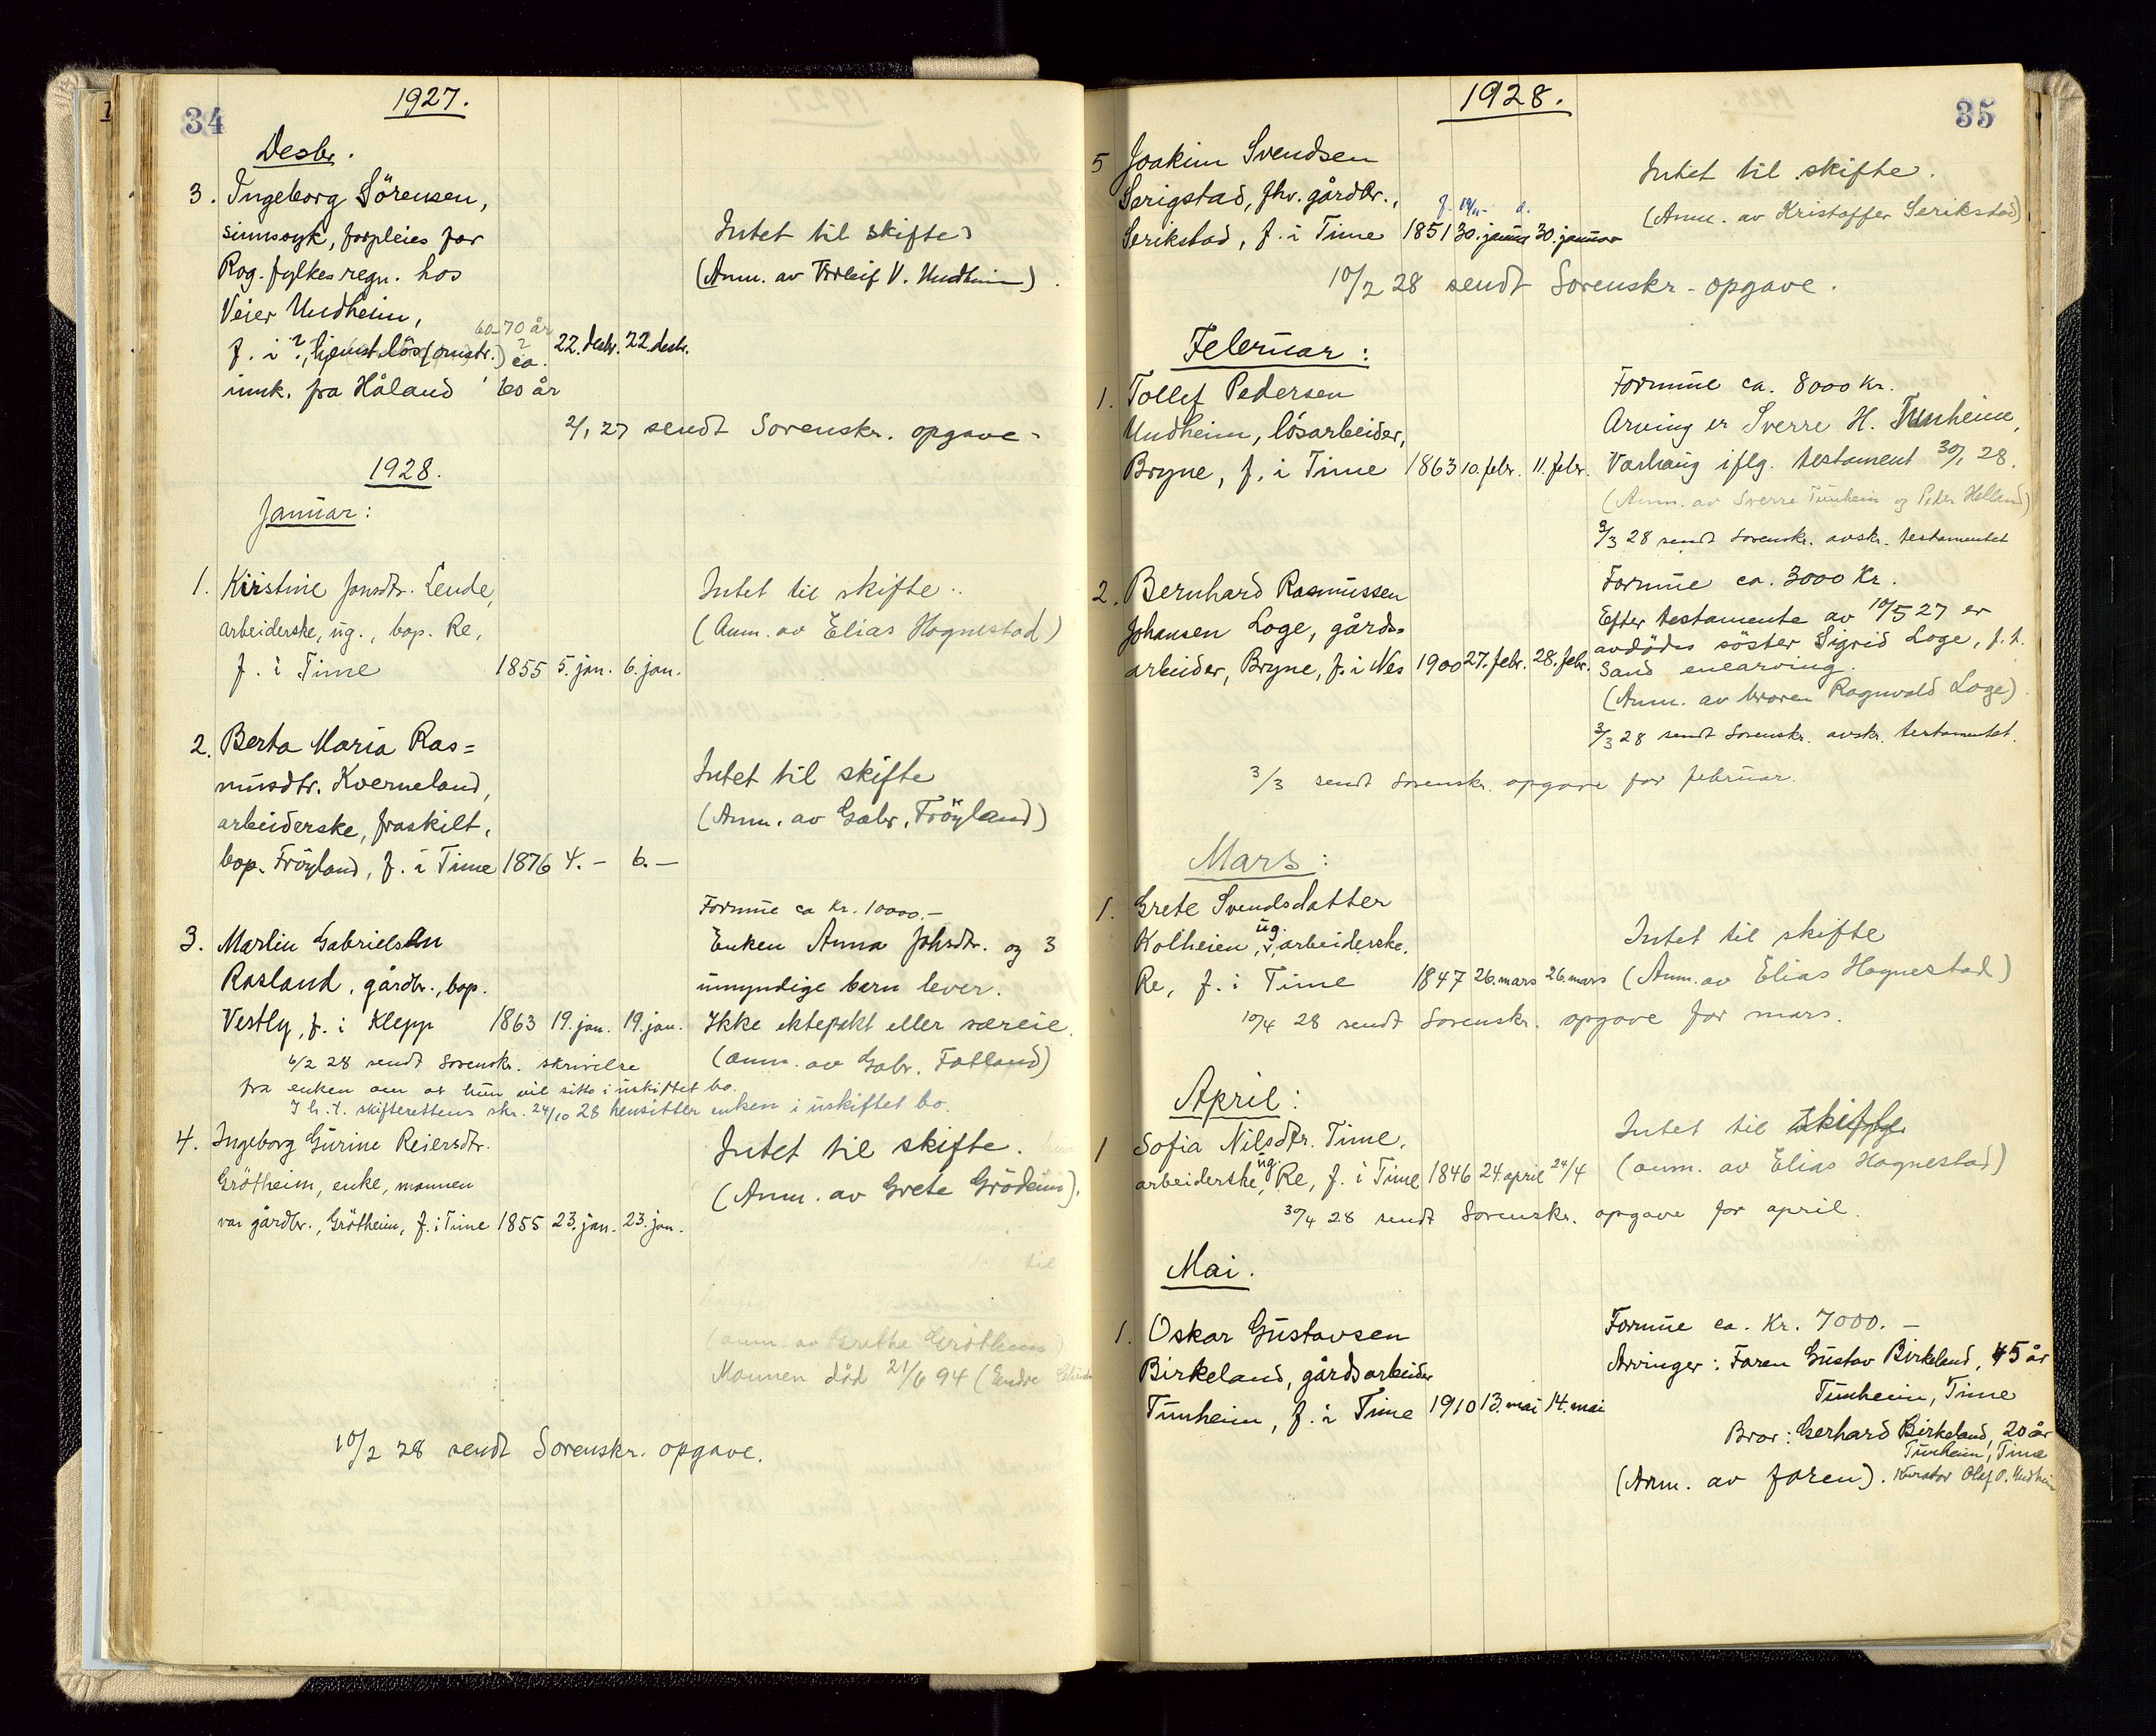 34
1927.
Desbr.
3. Ingeborg Sörensen,
sinnssyk, forpleies for
Rog. fylkes regn. hos
Veier Undheim,
60-70 år
f. i ?, hjemstlös (omstr.) ca. 22. desbr. 22. desbr.
innk. fra Håland 60 år
Intet til skifte
(Anm. av Torleif V. Undheim).
2/1 27 sendt Sorenskr. opgave-
1928.
Januar:
1. Kristine Jonsdtr. Lende,
arbeiderske, ug., bop. Re,
f. i Time 1855 5. jan. 6. jan.
Intet til skifte..
(Anm. av Elias Hognestad)
2. Berta Maria Ras=
musdtr. Kverneland,
arbeiderske, fraskilt,
bop. Fröyland, f. i Time 1876 4. - 6. -
Intet til skifte
(Anm. av Gabr. Fröyland)
3. Martin Gabrielsen
Rosland, gårdbr., bop.
Vestly, f. i Klepp 1863 19. jan. 19. jan.
Formue ca Kr. 10000.-
Enken Anna Johsdtr. og 3
umyndige barn lever.
Ikke ektepakt eller særeie.
(anm. av Gabr. Fotland)
6/2 28 sendt Sorenskr. skrivelse
fra enken om at hun vil sitte i uskiftet bo.
I h. t. skifterettens skr. 24/10 28 hensitter enken i uskiftet bo.
4. Ingeborg Gurine Reiersdtr.
Grötheim, enke, mannen
var gårdbr., Grötheim, f. i Time 1855 23. jan. 23. jan.
Intet til skifte.
(Anm. av Grete Grödeim).
(anm. av Grethe Grötheim)
Mannen död 21/6 94 (Endre
10/2 28 sendt Sorenskr. opgave.
35
1928.
5 Joakim Svendsen
Serigstad, fhv. gårdbr.,
f. d.
Serikstad, f. i Time 1851 30. januar 30. januar
Intet til skifte.
(Anm. av Kristoffer Serikstad)
10/2 28 sendt Sorenskr- opgave.
Februar:
1. Tollef Pedersen
Undheim, lösarbeider,
Bryne, f. i Time 1863 10. febr. 11. febr.
Formue ca. 8000 Kr.
Arving er Sverre H. Tunheim,
Varhaug iflg. testament 30/1 28.
(Anm. av Sverre Tunheim og Peder Helland)
3/3 28 sendt Sorenskr. avskr. testamentet
2. Bernhard Rasmussen
Johansen Loge, gårds=
arbeider, Bryne, f. i Nes 1900 27. febr. 28. febr.
Formue ca. 3000 Kr.
Efter testamente av 10/5 27 er
avdödes söster Sigrid Loge, f. t.
Sand enearving.
(Anm. av broren Ragnvald Loge)
3/3 28 sendt Sorenskr. avskr. testamentet.
3/3 sendt Sorenskr. opgave for februar.
Mars:
1. Grete Svendsdatter
ug.
Kolheien, v, arbeiderske,
Re, f. i Time 1847 26. mars 26. mars
Intet til skifte
(Anm. av Elias Hognestad)
10/4 28 sendt Sorenskr. opgave for mars.
April:
1 Sofia Nilsdtr. Time,
ug.
arbeiderske, Re, f. i Time 1846 24. april 24/4
Intet til skifte
(anm. av Elias Hognestad)
30/4 28 sendt Sorenskr. opgave for april.
Mai.
1. Oskar Gustavsen
Birkeland, gårdsarbeider
Tunheim, f. i Time 1910 13. mai 14. mai
Formue ca. Kr. 7000.-
Arvinger: Faren Gustav Birkeland, 45 år
Tunheim, Time
Bror: Gerhard Birkeland, 20 år
Tunheim, Time
(Anm. av faren). Kurator Olaf O. Undheim